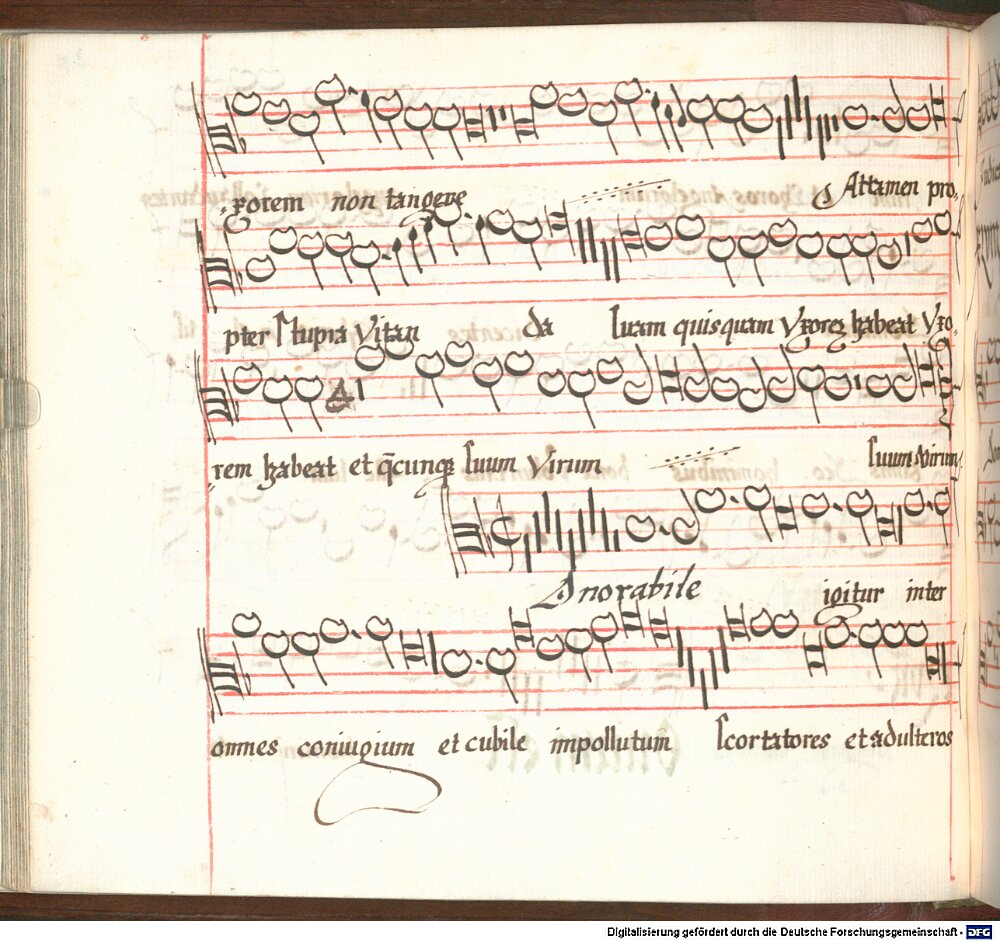 xorem non tangere Attamen pro,
pter stupra Vitan da suam quisquam Vxorez habeat Vxo,
rem habeat et q̃cunqꝫ suum Virum suum Virum
Onorabile igitur inter
omnes coniugium et cubile impollutum scortatores et adulteros
Digitalisierung gefördert durch die Deutsche Forschungsgemeinschaft - DFG